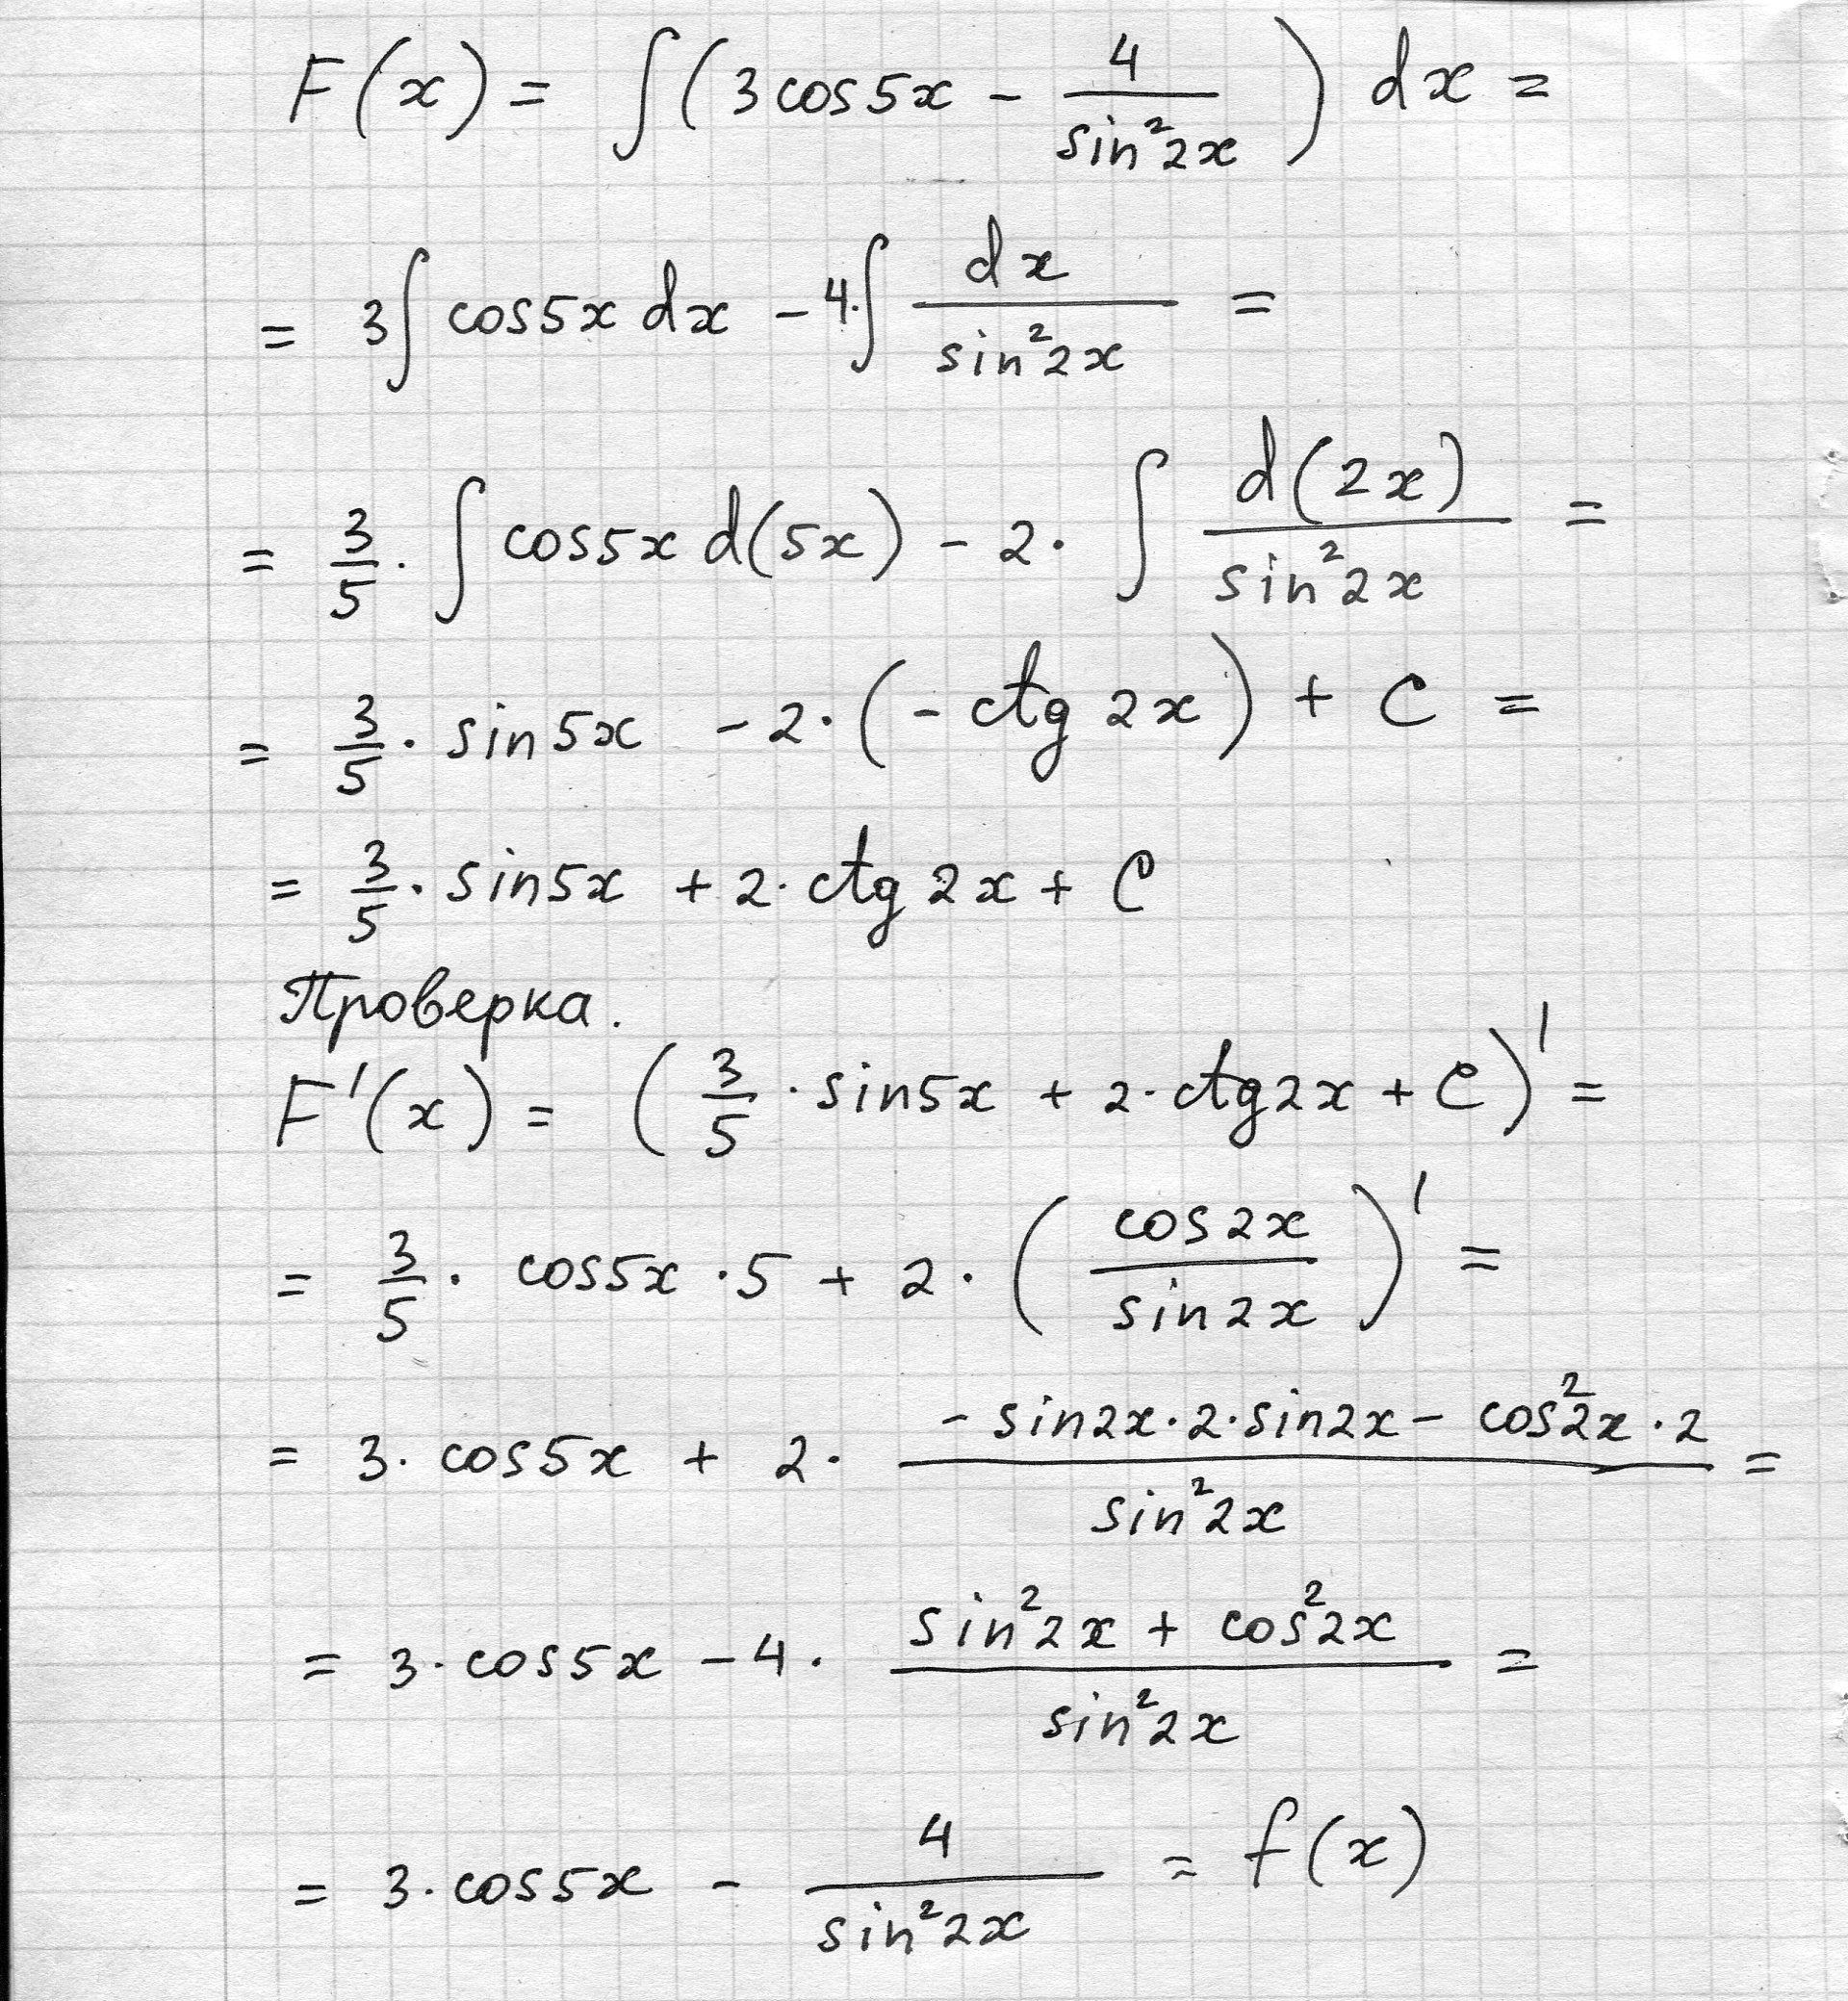 F(x) = ∫(3cos5x - 4/sin²2x) dx =
= 3∫cos5x dx - 4·∫ dx/sin²2x =
= 3/5 · ∫cos5x d(5x) - 2· ∫ d(2x)/sin²2x =
= 3/5 · sin5x - 2·(-ctg 2x) + C =
= 3/5 · sin5x + 2·ctg 2x + C
Проверка.
F'(x) = (3/5 · sin5x + 2·ctg2x + C)' =
= 3/5 · cos5x · 5 + 2 · (cos2x/sin2x)' =
= 3· cos5x + 2· (-sin2x·2·sin2x - cos²2x·2)/sin²2x =
= 3·cos5x - 4· (sin²2x + cos²2x)/sin²2x =
= 3·cos5x - 4/sin²2x = f(x)